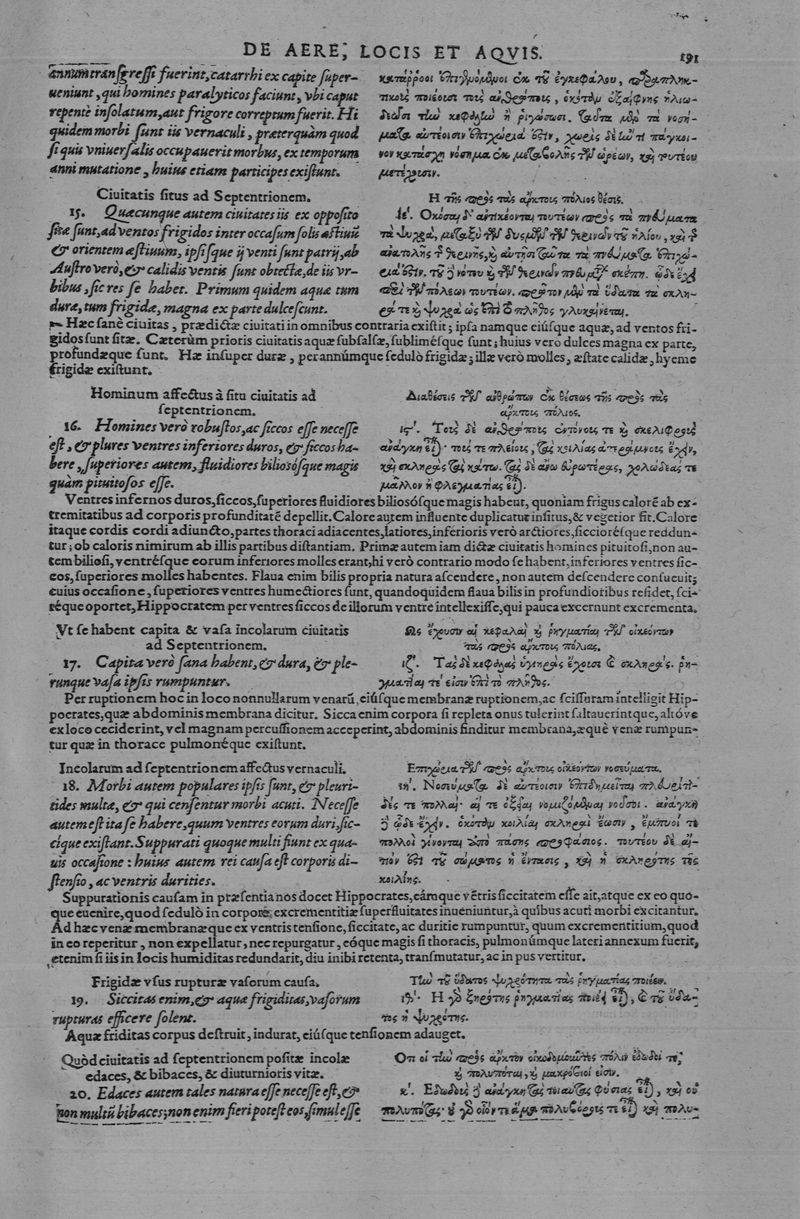 DE AERE, LOCIS ET AQVIS.
191
annum transgressi fuerint, catarrhi ex capite super-
ueniunt, qui homines paralyticos faciunt, vbi caput
repentè insolatum, aut frigore correptum fuerit. Hi
quidem morbi sunt iis vernaculi, præterquàm quod
si quis vniuersalis occupauerit morbus, ex temporum
anni mutatione, huius etiam participes existunt.
κατάρροοι ἐπιγενόμενοι ἐκ τοῦ ἐγκεφάλου, παραπληκ-
τικοὺς ποιέουσι τοὺς ἀνθρώπους, ὁκόταν ἐξαίφνης ἡλιω-
θέωσι τὴν κεφαλὴν ἢ ῥιγώσωσι. ταῦτα μὲν τὰ νοσή-
ματα αὐτέοισιν ἐπιχώριά ἐστιν, χωρὶς δὲ ἤν τι πάγκοι-
νον κατάσχῃ νόσημα ἐκ μεταβολῆς τῶν ὡρέων, καὶ τουτέου
μετέχουσιν.
Ciuitatis situs ad Septentrionem.
15. Quæcunque autem ciuitates iis ex opposito
sitæ sunt, ad ventos frigidos inter occasum solis æstiuū
& orientem æstiuum, ipsisque ij venti sunt patrij, ab
Austro verò, & calidis ventis sunt obtectæ, de iis vr-
bibus, sic res se habet. Primum quidem aquæ tum
duræ, tum frigidæ, magna ex parte dulcescunt.
Η τῆς πρὸς τὰς ἄρκτους πόλιος θέσις.
ιε΄. Ὁκόσαι δ᾽ ἀντικέονται τουτέων πρὸς τὰ πνεύματα
τὰ ψυχρὰ, μεταξὺ τῶν δυσμῶν τῶν θερινῶν τοῦ ἡλίου, καὶ τῆς
ἀνατολῆς τῆς θερινῆς, καὶ αὐτῇσι ταῦτα τὰ πνεύματα ἐπιχώ-
ριά ἐστιν. τοῦ δὲ νότου καὶ τῶν θερμῶν πνευμάτων σκέπη. ὧδε ἔχει
περὶ τῶν πόλεων τουτέων. πρῶτον μὲν τὰ ὕδατα τὰ σκλη-
ρά τε καὶ ψυχρὰ ὡς ἐπὶ τὸ πλῆθος γλυκαίνεται.
Hæc sanè ciuitas, prædictæ ciuitati in omnibus contraria existit; ipsa namque eiúsque aquæ, ad ventos fri-
gidos sunt sitæ. Cæterùm prioris ciuitatis aquæ subsalsæ, sublimésque sunt; huius verò dulces magna ex parte,
profundæque sunt. Hæ insuper duræ, perannúmque sedulò frigidæ; illæ verò molles, æstate calidæ, hyeme
frigidæ existunt.
Hominum affectus à situ ciuitatis ad
septentrionem.
16. Homines verò robustos, ac siccos esse necesse
est, & plures ventres inferiores duros, & siccos ha-
bere, superiores autem, fluidiores biliosósque magis
quàm pituitosos esse.
Διαθέσεις τῶν ἀνθρώπων ἐκ θέσεως τῆς πρὸς τὰς
ἄρκτους πόλιος.
ις΄. Τοὺς δὲ ἀνθρώπους ἐντόνους τε καὶ σκελιφροὺς
ἀνάγκη εἶναι· τούς τε πλείους, τὰς κοιλίας ἀτεράμνους ἔχειν,
καὶ σκληρὰς τὰς κάτω. τὰς δὲ ἄνω εὐρωτέρας, χολώδεάς τε
μᾶλλον ἢ φλεγματίας εἶναι.
Ventres infernos duros, siccos, superiores fluidiores biliosósque magis habent, quoniam frigus calorē ab ex-
tremitatibus ad corporis profunditatē depellit. Calore autem influente duplicatur insitus, & vegetior fit. Calore
itaque cordis cordi adiuncto, partes thoraci adiacentes, latiores, inferioris verò arctiores, siccioresque reddun-
tur; ob caloris nimirum ab illis partibus distantiam. Primæ autem iam dictæ ciuitatis homines pituitosi, non au-
tem biliosi, ventrésque eorum inferiores molles erant, hi verò contrario modo se habent, inferiores ventres sic-
cos, superiores molles habentes. Flaua enim bilis propria natura ascendere, non autem descendere consueuit;
cuius occasione, superiores ventres humectiores sunt, quandoquidem flaua bilis in profundioribus residet, sci-
réque oportet, Hippocratem per ventres siccos de illorum ventre intellexisse, qui pauca excernunt excrementa.
Vt se habent capita & vasa incolarum ciuitatis
ad Septentrionem.
17. Capita verò sana habent, & dura, & ple-
runque vasa ipsis rumpuntur.
Ὡς ἔχουσιν αἱ κεφαλαὶ καὶ ῥηγματίαι τῶν οἰκεόντων
τὰς πρὸς ἄρκτους πόλιας.
ιζ΄. Τὰς δὲ κεφαλὰς ὑγιηρὰς ἔχουσι καὶ σκληράς. ῥη-
γματίαι τέ εἰσιν ἐπὶ τὸ πλῆθος.
Per ruptionem hoc in loco nonnullarum venarū, eiúsque membranæ ruptionem, ac scissuram intelligit Hip-
pocrates, quæ abdominis membrana dicitur. Sicca enim corpora si repleta onus tulerint saltauerintque, altóve
ex loco ceciderint, vel magnam percussionem acceperint, abdominis finditur membrana, æquè venæ rumpun-
tur quæ in thorace pulmonéque existunt.
Incolarum ad septentrionem affectus vernaculi.
18. Morbi autem populares ipsis sunt, & pleuri-
tides multæ, & qui censentur morbi acuti. Necesse
autem est ita se habere, quum ventres eorum duri, sic-
cíque existant. Suppurati quoque multi fiunt ex qua-
uis occasione: huius autem rei causa est corporis di-
stensio, ac ventris durities.
Ἐπιχώρια τῶν πρὸς ἄρκτους οἰκεόντων νοσεύματα.
ιη΄. Νοσεύματα δὲ αὐτέοισιν ἐπιδημεῖται πλευρίτι-
δές τε πολλαὶ· αἵ τε ὀξεῖαι νομιζόμεναι νοῦσοι. ἀνάγκη
δὲ ὧδε ἔχειν. ὁκόταν κοιλίαι σκληραὶ ἔωσιν, ἔμπυοί τε
πολλοὶ γίνονται ἀπὸ πάσης προφάσιος. τουτέου δὲ αἴ-
τιόν ἐστι τοῦ σώματος ἡ ἔντασις, καὶ ἡ σκληρότης τῆς
κοιλίης.
Suppurationis causam in præsentia nos docet Hippocrates, eámque vētris siccitatem esse ait, atque ex eo quo-
que euenire, quod sedulò in corpore excrementitiæ superfluitates inueniuntur, à quibus acuti morbi excitantur.
Ad hæc venæ membranæque ex ventris tensione, siccitate, ac duritie rumpuntur, quum excrementitium, quod
in eo reperitur, non expellatur, nec repurgatur, eóque magis si thoracis, pulmonúmque lateri annexum fuerit,
etenim si iis in locis humiditas redundarit, diu inibi retenta, transmutatur, ac in pus vertitur.
Frigidæ vsus rupturæ vasorum causa.
19. Siccitas enim, & aquæ frigiditas, vasorum
rupturas efficere solent.
Τὴν τοῦ ὕδατος ψυχρότητα τὰς ῥηγματίας ποιέειν.
ιθ΄. Ἡ γὰρ ξηρότης ῥηγματίας ποιέει εἶναι, καὶ τοῦ ὕδα-
τος ἡ ψυχρότης.
Aquæ friditas corpus destruit, indurat, eiúsque tensionem adauget.
Quòd ciuitatis ad septentrionem positæ incolæ
edaces, & bibaces, & diuturnioris vitæ.
20. Edaces autem tales natura esse necesse est, &
non multū bibaces; non enim fieri potest eos, simul esse
Ὅτι οἱ τὴν πρὸς ἄρκτον οἰκοδομοῦντες πόλιν ἐδωδοί τε,
καὶ πολυπόται, καὶ μακρόβιοί εἰσιν.
κ΄. Ἐδωδοὺς δὲ ἀνάγκη τὰς τοιαύτας φύσιας εἶναι, καὶ οὐ
πολυπότας· οὐ γὰρ οἷόν τε ἅμα πολυβόρους τε εἶναι καὶ πολυ-